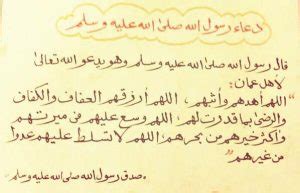 دعاء رسول الله صلى الله عليه وسلم
قال رسول الله صلى الله عليه وسلم وهو يدعو الله تعالى
لأهل عمان:
"اللهم أهدهم وأثبهم، اللهم أرزقهم العفاف والكفاف
والرضى بما قدرت لهم، اللهم وسع عليهم في ميرتهم
وأكثر خيرهم من بحرهم، اللهم لا تسلط عليهم عدوا
من غيرهم"
. صدق رسول الله صلى الله عليه وسلم